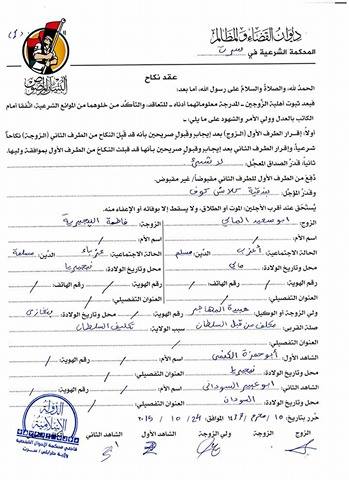 ديوان القضاء والمظالم
المحكمة الشرعية في سرت
عقد نكاح
الحمد لله، والصلاة والسلام على رسول الله، أما بعد:
فبعد ثبوت أهلية الزوجين - المدرجة معلوماتهما أدناه - للتعاقد، والتأكد من خلوهما من الموانع الشرعية، اتفقا أمام
الكاتب بالعدل وولي الأمر والشهود على ما يلي:
أولاً: إقرار الطرف الأول (الزوج) بعد إيجاب وقبول صريحين بأنه قد قبل النكاح من الطرف الثاني (الزوجة) نكاحاً
شرعياً، وإقرار الطرف الثاني بعد إيجاب وقبول صريحين بأنها قد قبلت النكاح من الطرف الأول بموافقة وليها.
ثانياً: قدر الصداق المعجّل: لا شيء
دُفِعَ من الطرف الأول للطرف الثاني مقبوضاً/ غير مقبوض.
وقدر المؤجّل: بندقية كلاش كوف
يُستحق عند أقرب الأجلين، الموت أو الطلاق، ولا يسقط إلا بوفائه أو الإعفاء منه.
الزوج: أبو سعيد المالي الزوجة: فاطمة النيجيرية
اسم الأم: اسم الأم:
الحالة الاجتماعية: أعزب الدّين: مسلم الحالة الاجتماعية: عزباء الدّين: مسلمة
محل وتاريخ الولادة: مالي محل وتاريخ الولادة: نيجيريا
رقم الهوية: رقم الهاتف: رقم الهوية: رقم الهاتف:
العنوان التفصيلي: العنوان التفصيلي:
ولي الزوجة أو الوكيل: عبيدة المهاجر محل وتاريخ الولادة: بنغازي
صلة القربى: مكلف من قبل السلطان سبب الولاية: تكليف السلطان
العنوان التفصيلي: رقم الهوية:
الشاهد الأول: أبو حمزة اسم الأم: رقم الهوية:
محل وتاريخ الولادة: نيجيريا العنوان التفصيلي:
الشاهد الثاني: السوداني اسم الأم: رقم الهوية:
محل وتاريخ الولادة: السودان العنوان التفصيلي:
حُرّر بتاريخ: ١٠ / محرم / ١٤٣٧ الموافق 24 / ١٠ / ٢٠١٥
الزوج الزوجة ولي الزوجة الشاهد الأول الشاهد الثاني
الدولة
الإسلامية